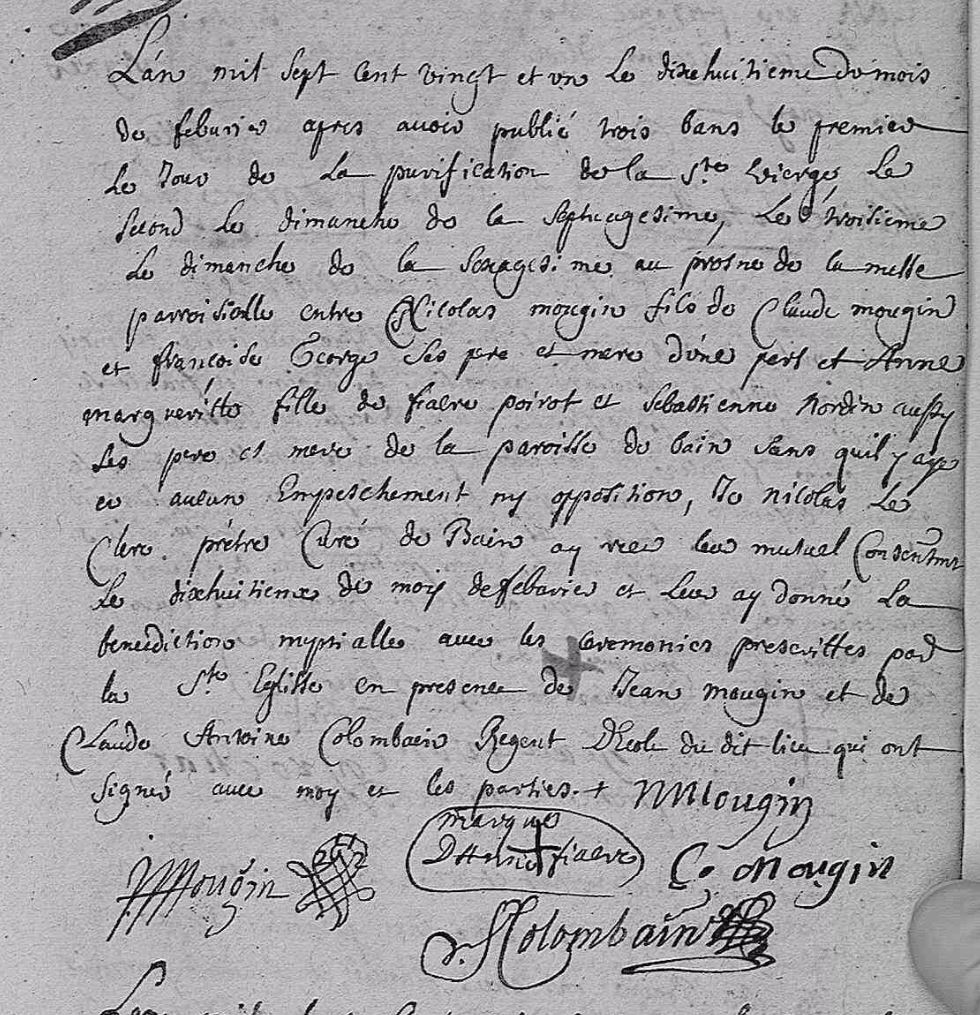 L'an mil sept cent vingt et un le dixehuitieme du mois
de feburier apres avoir publié trois bans le premier
le Jour de la purification de la Ste vierge le
second le dimanche de la septuagesime, Le troisieme
le dimanche de la sexagesime au prosne de la messe
parroisialle entre Nicolas mougin fils de Claude mougin
et francoise George ses pere et mere d'une part et Anne
margueritte fille de fiacre poirot et sebastienne Nordin aussy
ses pere et mere de la paroisse de bain sans quil y aye
eu aucun Empeschement ny opposition, Je nicolas Le
Clerc prétre Curé de Bain ay receu leur mutuel Consentmt
le dixhuitieme de mois de febvrier et Leur ay donné La
benediction nuptialle avec les ceremonies prescrittes par
la Ste Eglisse en presence de Jean mougin et de
Claude Antoine Colombain Regent D'Ecole du dit lieu qui ont
signés avec moy et les parties. + NMougin
marque
Mougin D'Anne + fiacre C. Mougin
Colombain